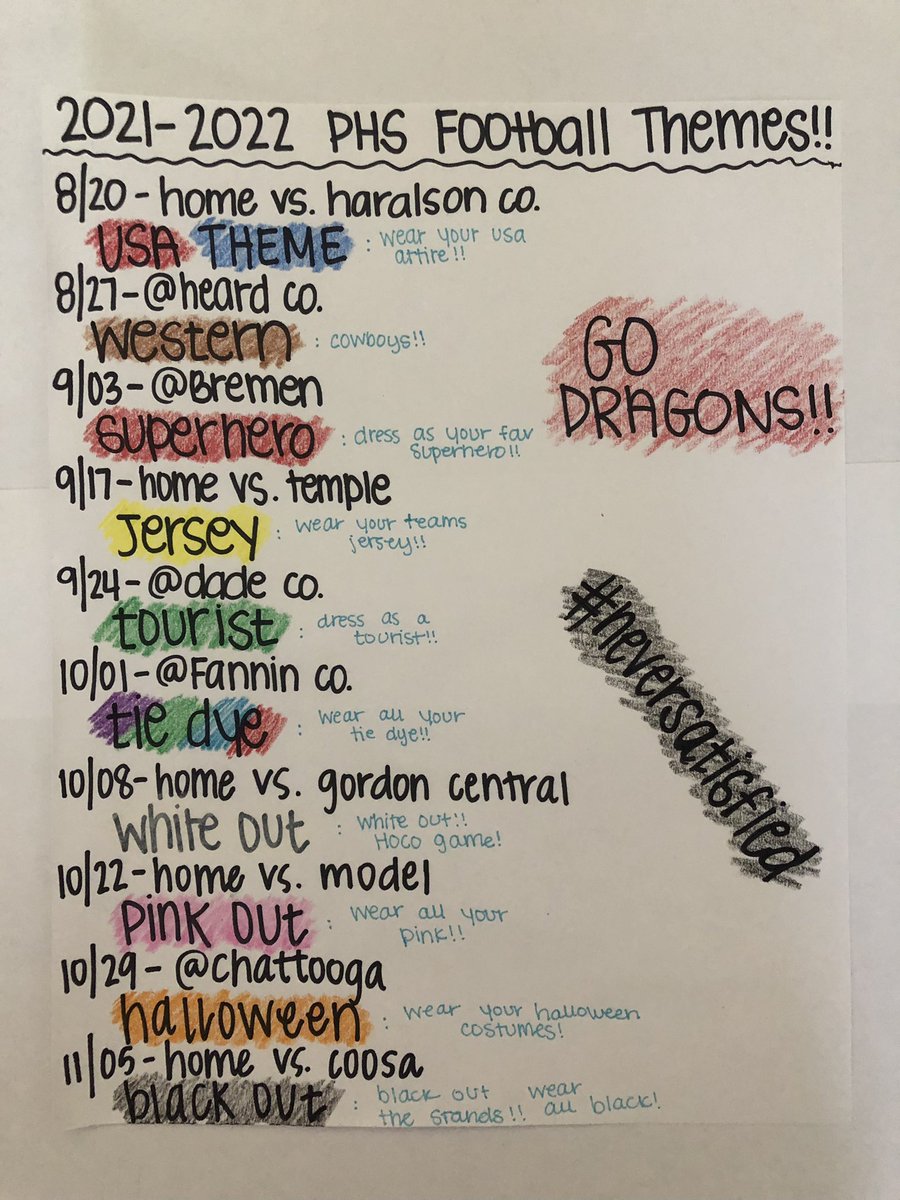 2021-2022 PHS Football Themes!!
8/20 - home vs. haralson co.
USA THEME : wear your usa
attire!!
8/27 - @heard co.
western : cowboys!!
GO
DRAGONS!!
9/03 - @Bremen
superhero : dress as your fav
superhero!!
9/17 - home vs. temple
Jersey : wear your teams
jersey!!
9/24 - @dade co.
tourist : dress as a
tourist!!
#neversatisfied
10/01 - @Fannin co.
tie dye : wear all your
tie dye!!
10/08 - home vs. gordon central
white out : white out!!
Hoco game!
10/22 - home vs. model
pink out : wear all your
pink!!
10/29 - @chattooga
halloween : wear your halloween
costumes!
11/05 - home vs. coosa
black out : black out wear
the stands!! all black!